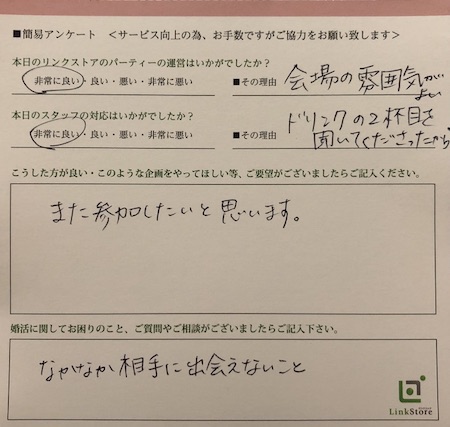 ■簡易アンケート ＜サービス向上の為、お手数ですがご協力をお願い致します＞
本日のリンクストアのパーティーの運営はいかがでしたか？
非常に良い・良い・悪い・非常に悪い ■その理由 会場の雰囲気が
よい
本日のスタッフの対応はいかがでしたか？
非常に良い・良い・悪い・非常に悪い ■その理由 ドリンクの2杯目を
聞いてくださったから
こうした方が良い・このような企画をやってほしい等、ご要望がございましたらご記入ください。
また参加したいと思います。
婚活に関してお困りのこと、ご質問やご相談がございましたらご記入下さい。
なかなか相手に出会えないこと
LinkStore